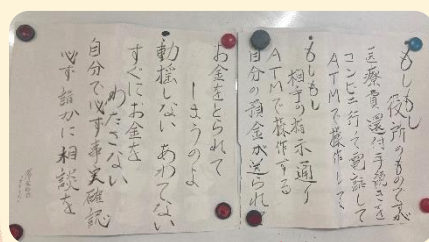 もしもし
役所のものですが
医療費還付手続きを
コンビニ行って電話して
ATMで操作して
もしもし
相手の指示通り
ATMで操作する
自分の預金が送られ
お金をとられて
しまうのよ
動揺しない あわてない
すぐにお金を
わたさない
自分で必ず事実確認
必ず誰かに相談を